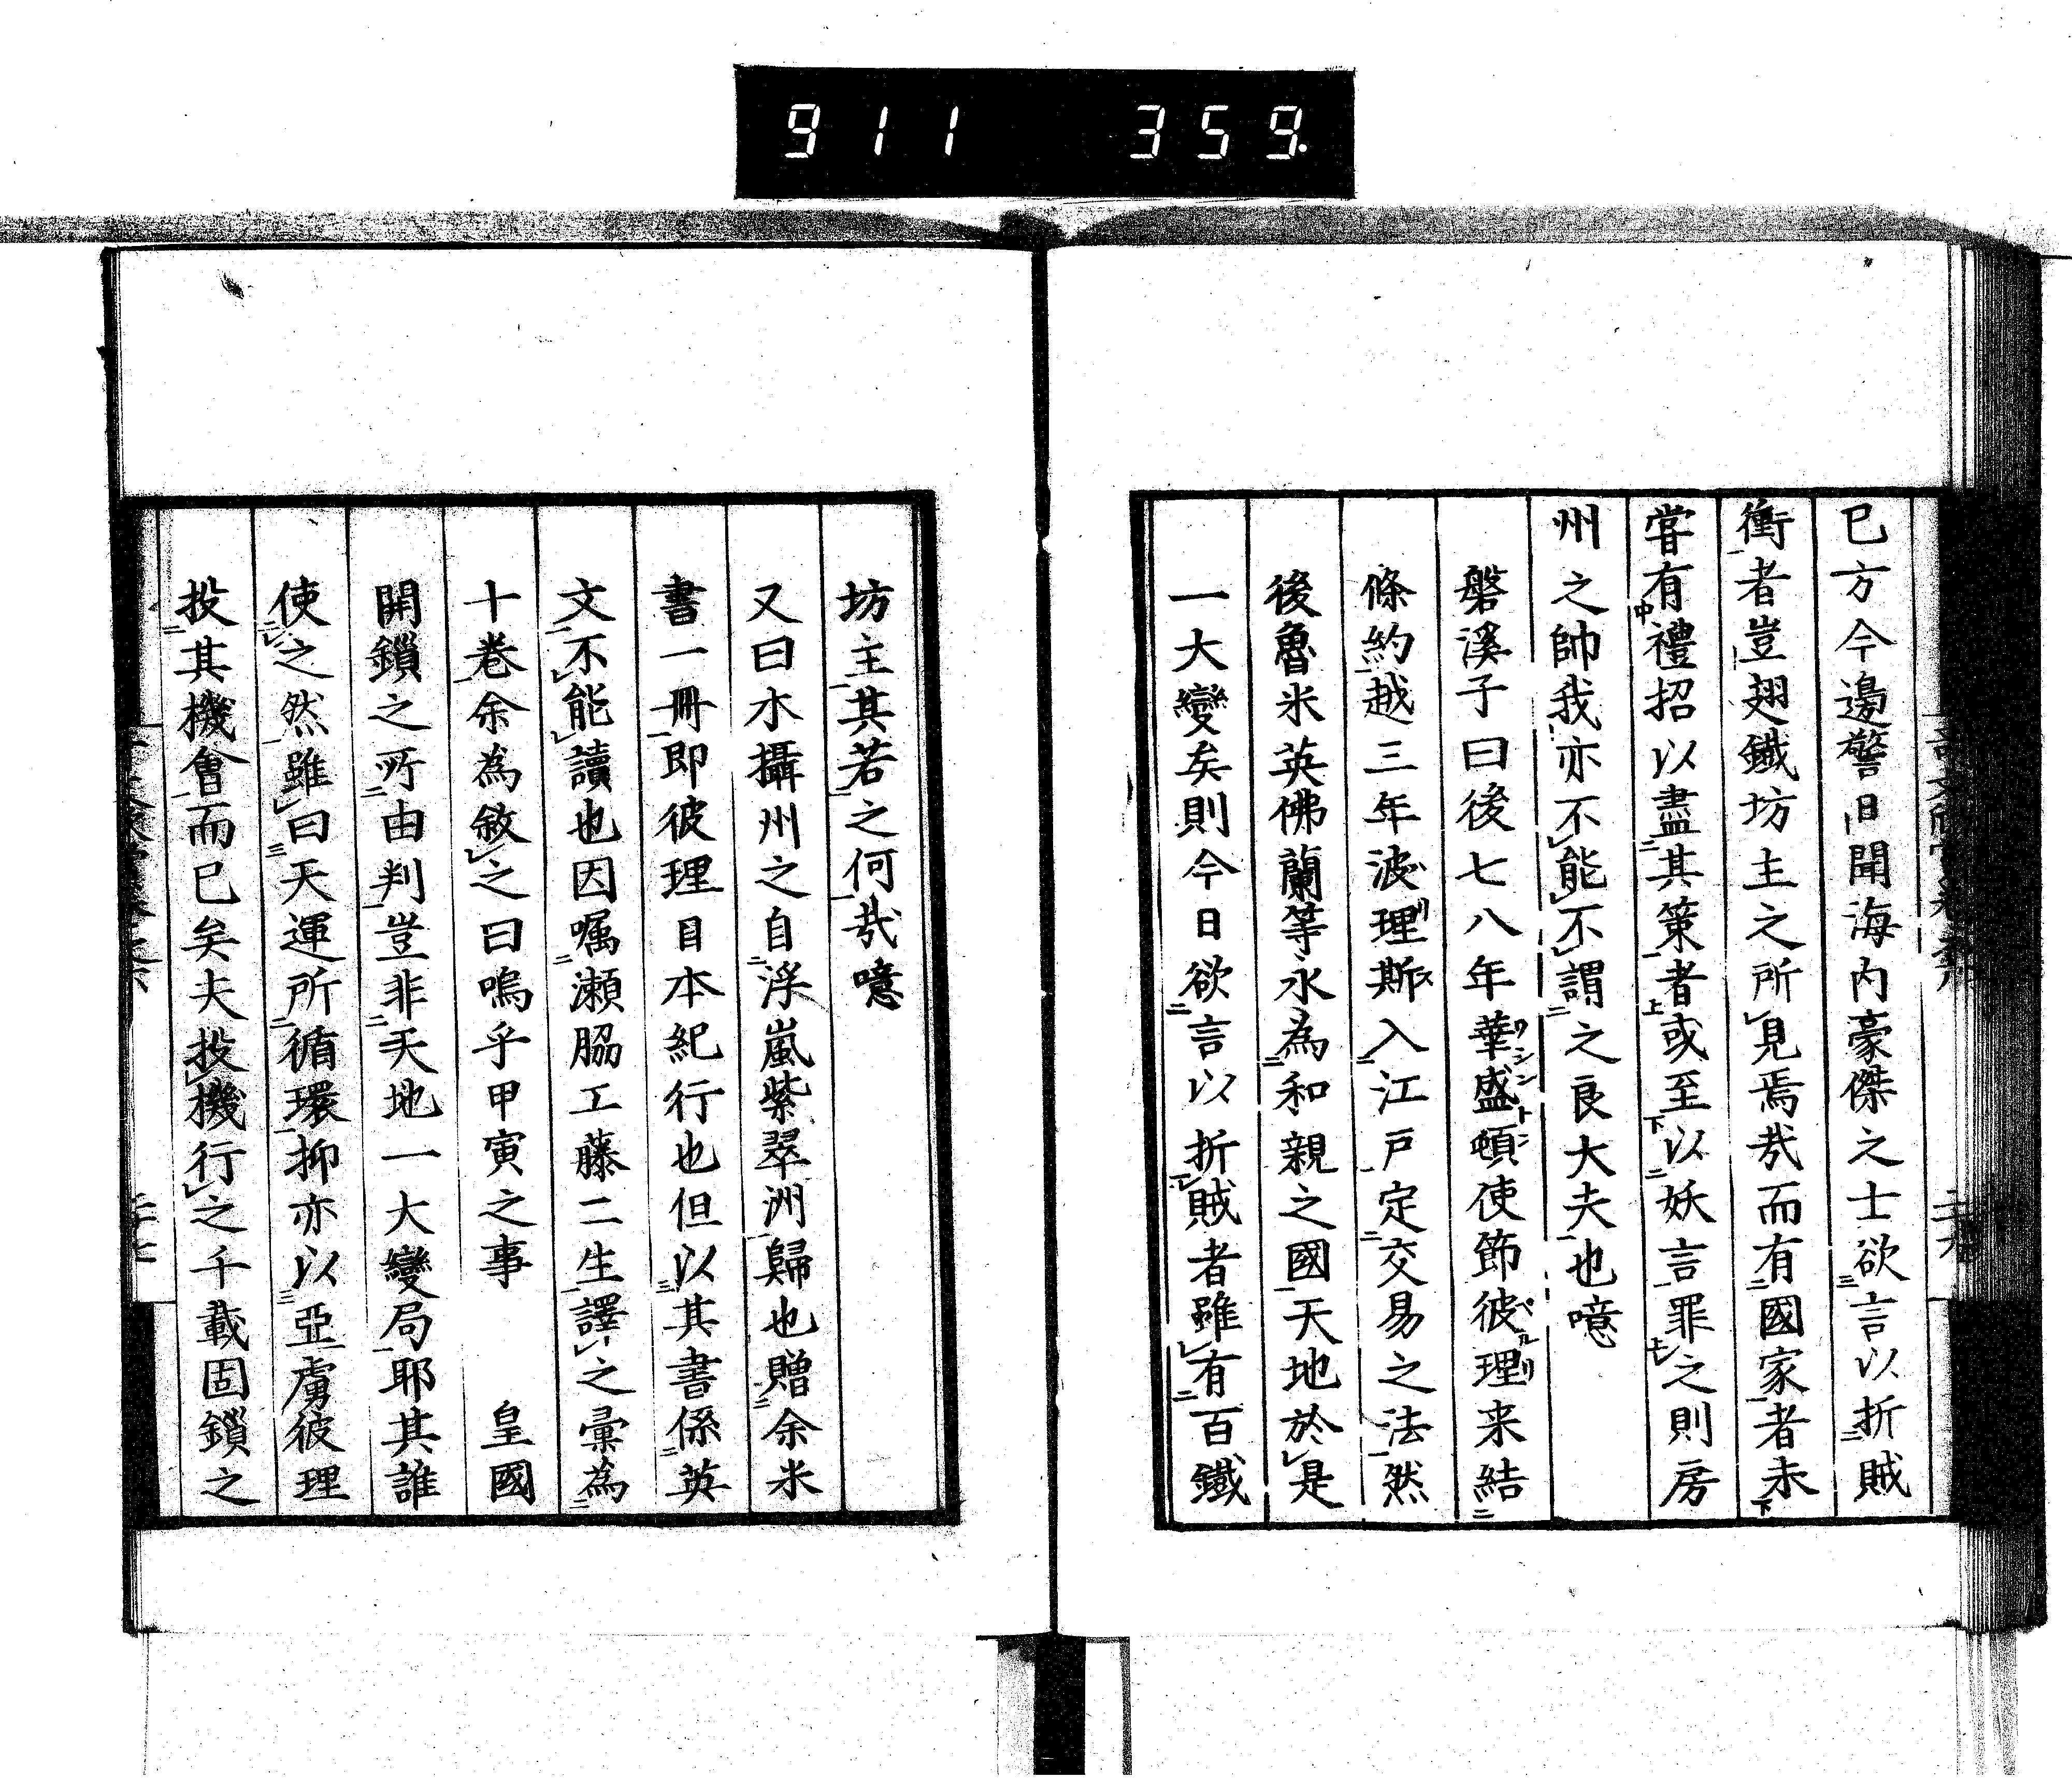 911 359.
已方今邊警日聞海内豪傑之士欲言以折賊
衝者豈翅鐵坊主之所見焉哉而有國家者未
嘗有禮招以盡其策者或至以妖言罪之則房
州之帥我亦不能不謂之良大夫也噫
磐溪子曰後七八年華盛頓使節彼理来結
條約越三年波理斯入江戸定交易之法然
後魯米英佛蘭等永為和親之國天地於是
一大變矣則今日欲言以折賊者雖有百鐵
坊主其若之何哉噫
又曰木攝州之自浮嵐紫翠洲歸也贈余米
書一冊即彼理日本紀行也但以其書係英
文不能讀也因嘱瀬脇工藤二生譯之彙為
十巻余為敘之曰嗚乎甲寅之事 皇國
開鎖之所由判豈非天地一大變局耶其誰
使之然雖曰天運所循環抑亦以亞虜彼理
投其機會而已矣夫投機行之千載固鎖之